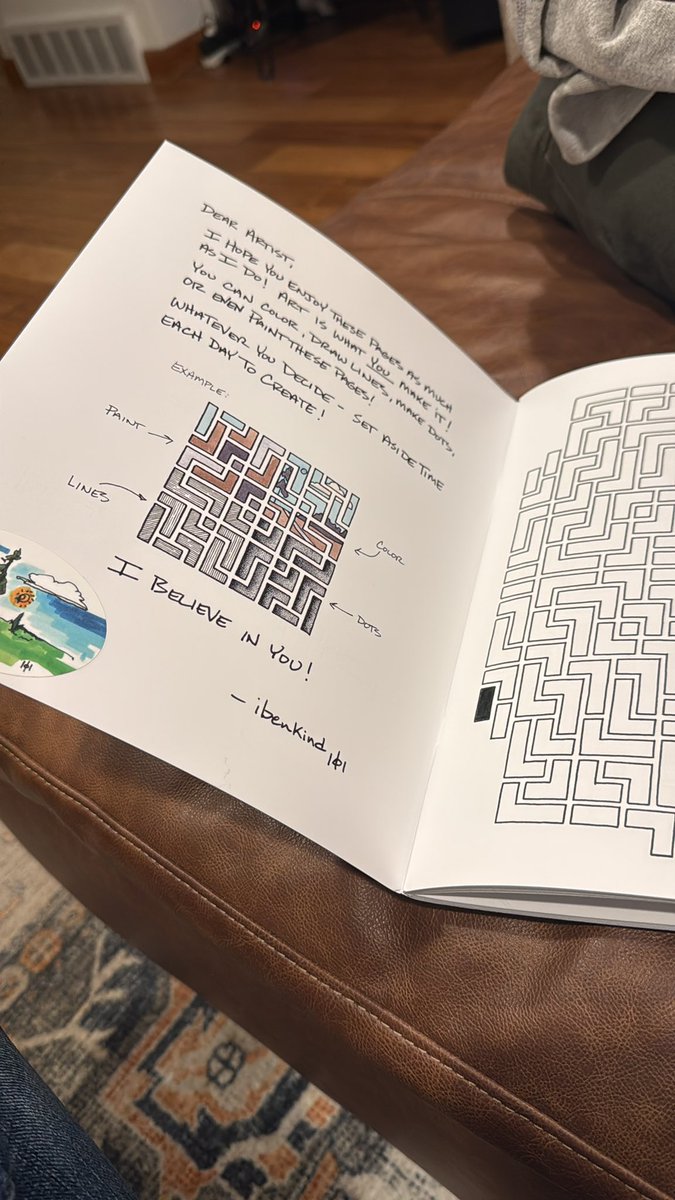 DEAR ARTIST,
I HOPE YOU ENJOY THESE PAGES AS MUCH
AS I DO! ART IS WHAT YOU MAKE IT!
YOU CAN COLOR, DRAW LINES, MAKE DOTS,
OR EVEN PAINT THESE PAGES!
WHATEVER YOU DECIDE - SET ASIDE TIME
EACH DAY TO CREATE!
EXAMPLE:
PAINT
LINES
COLOR
DOTS
I BELIEVE IN YOU!
- ibenkind